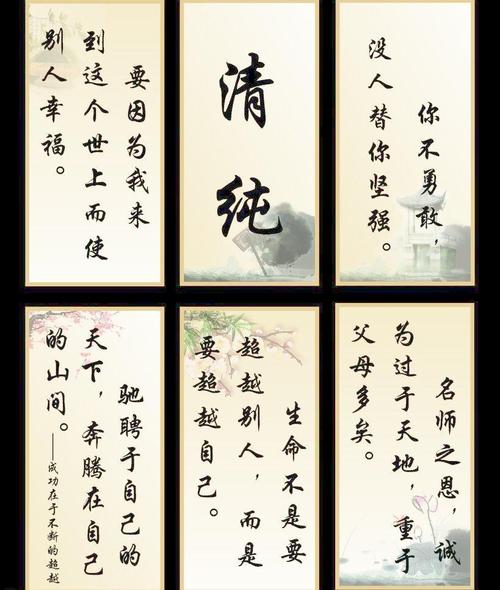 要因为我来
到这个世上而使
别人幸福。
清
纯
你不勇敢，
没人替你坚强。
驰聘于自己的
天下，奔腾在自己
的山间。
——成功在于不断的超越
生命不是要
超越别人，而是
要超越自己。
名师之恩，诚
为过于天地，重于
父母多矣。